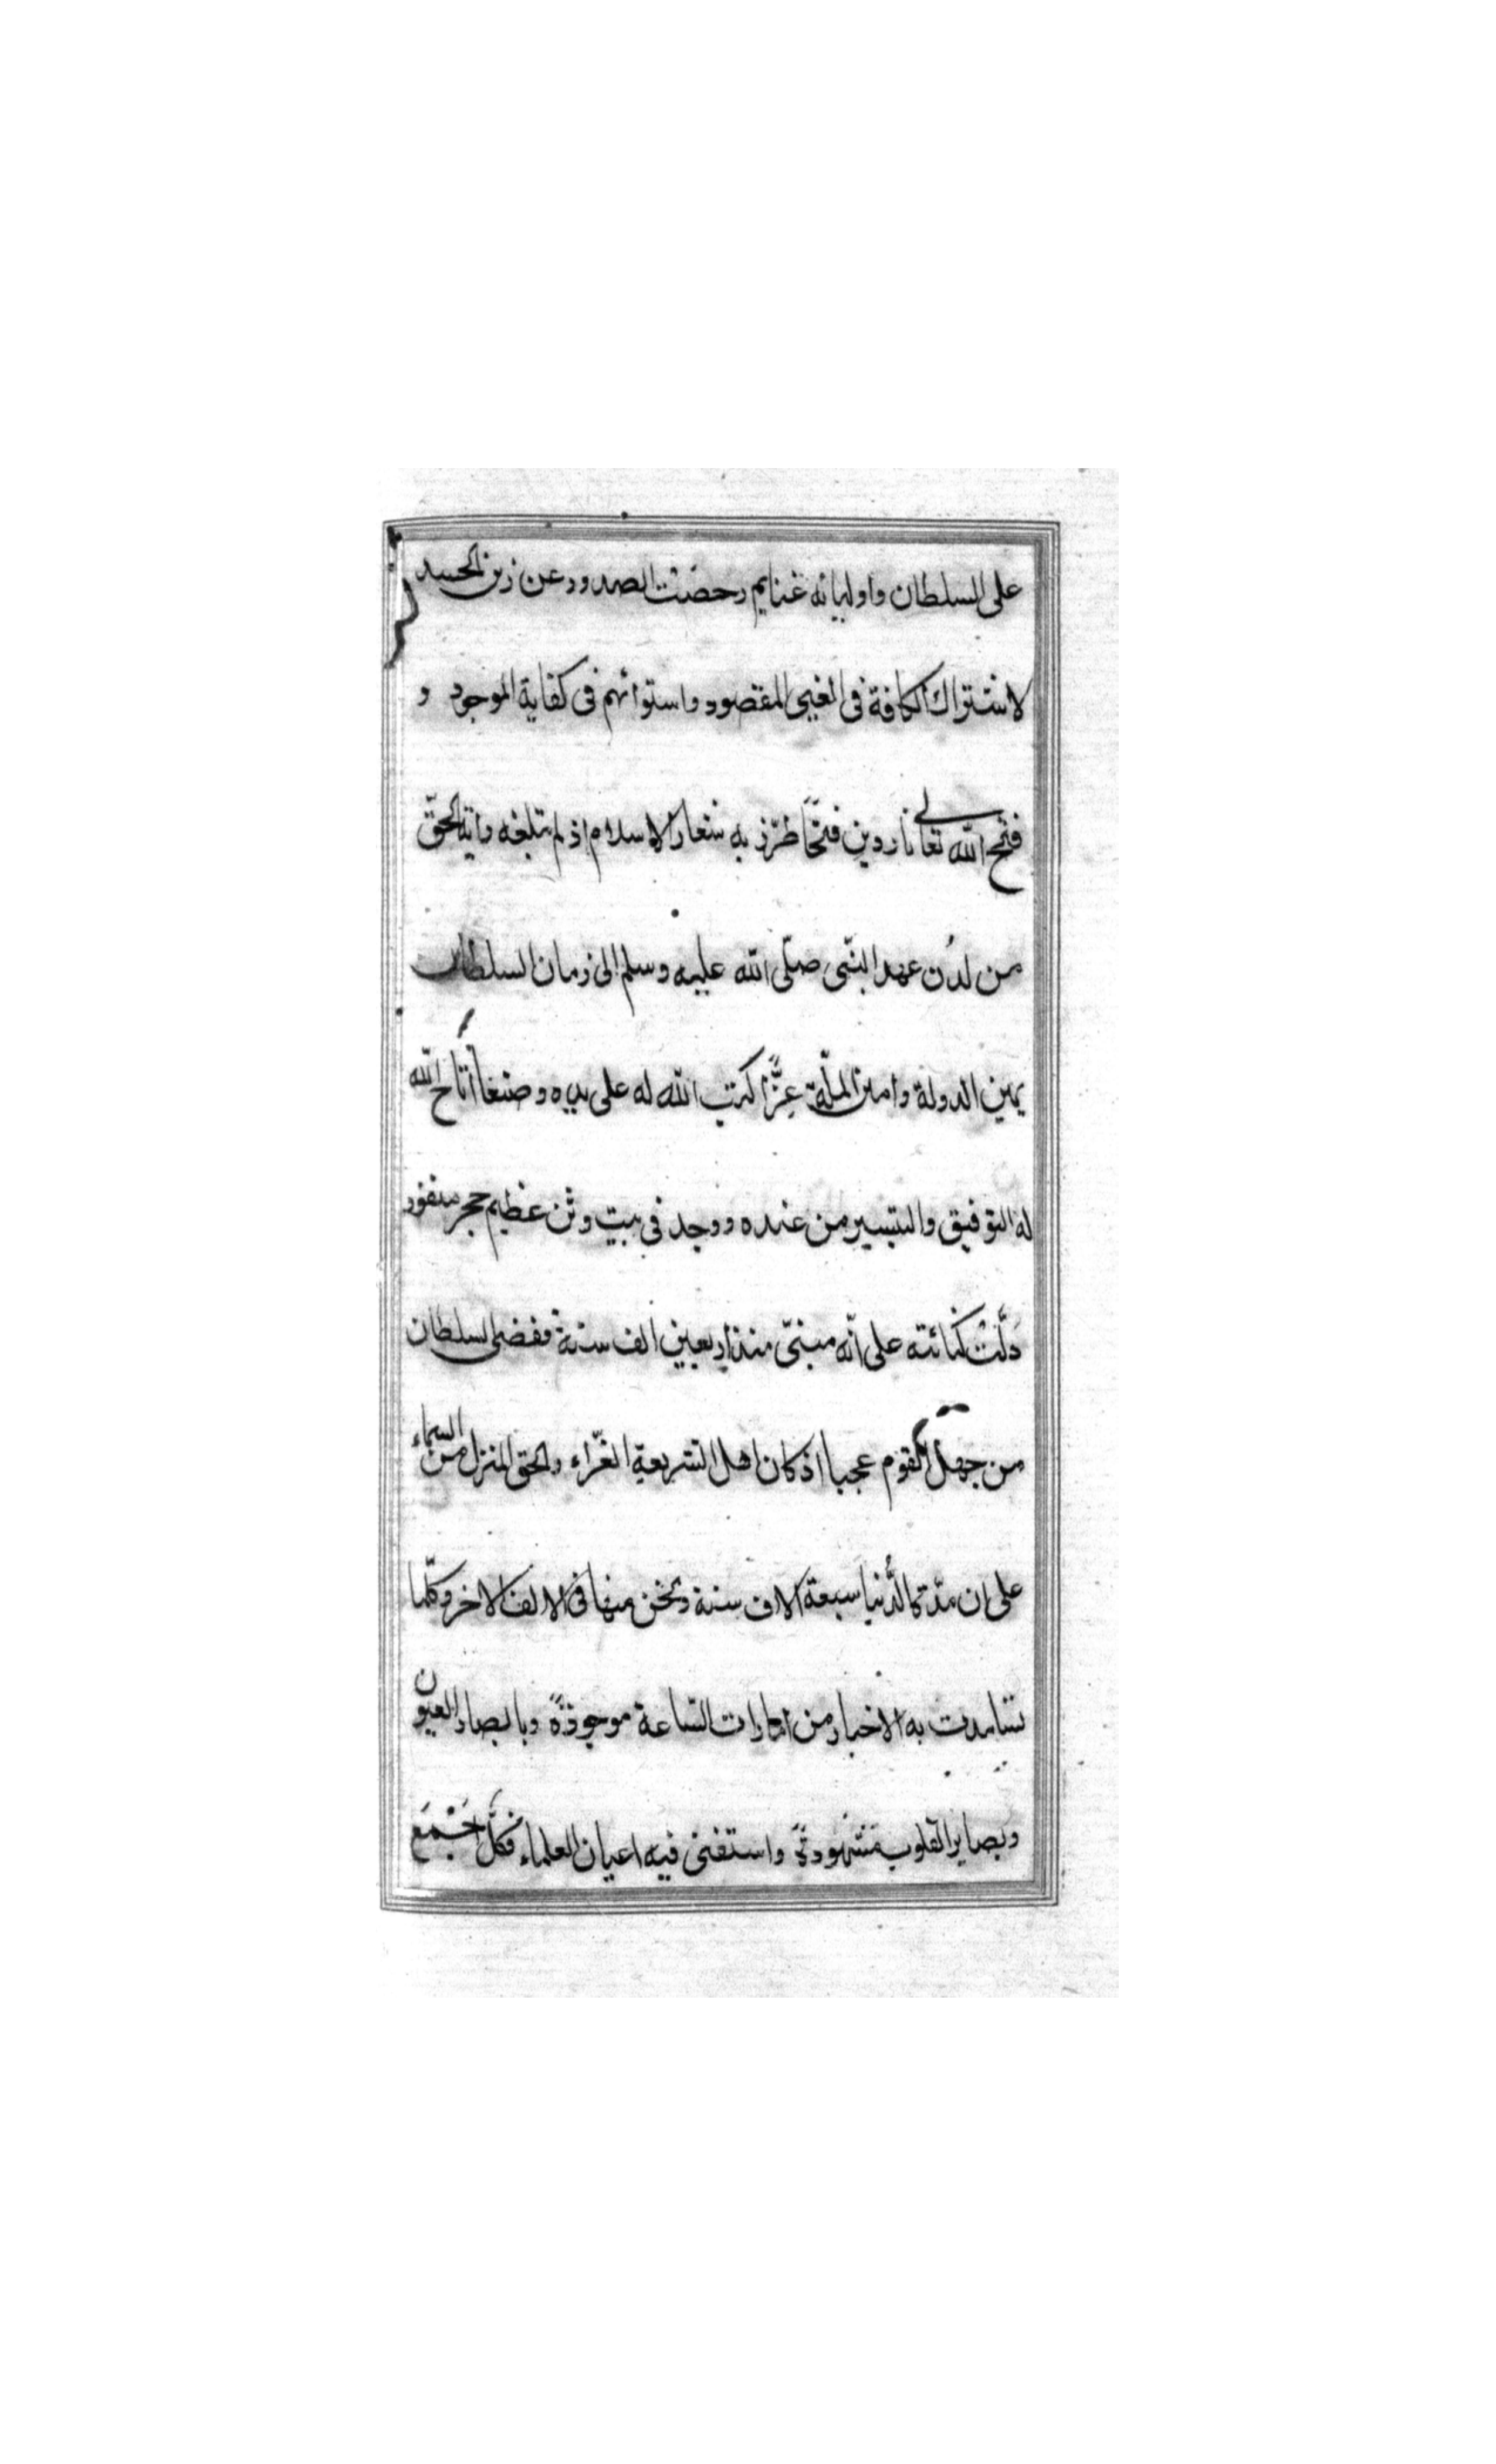 على السلطان واوليائه غنايم رحضت الصدور عن زين الحسد
لاشتراك الكافة فى الغنى المقصود واستوائهم فى كفاية الموجود و
فتح الله تعالى ناردين فتحًا طرّز به شعار الاسلام اذ لم تبلغه راية الحقّ
من لدُن عهد النبّى صلّى الله عليه وسلم الى زمان السلطان
يمين الدولة وامين الملّة عِزًّا كتب الله له على يديه وصنعاً أتاح الله
له التوفيق والتيسير من عنده ووجد فى بيت وثن عظيم حجر منقور
دَلَّتْ كتائته على انّه مبنىّ منذ اربعين الف سنة فقضى السلطان
من جهل القوم عجبا اذ كان اهل الشريعة الغّراء والحق المنزل من السماء
على ان مدّة الدُّنيا سبعة الاف سنة ونحن منها فى الالف الاخر وكلّما
شاهدت به الاخبار من امارات السّاعة موجودةً وبابصار العيون
وبصاير القلوب مَشهودةً واستفتى فيه اعيان العلماء فكلّ اجْمَعَ